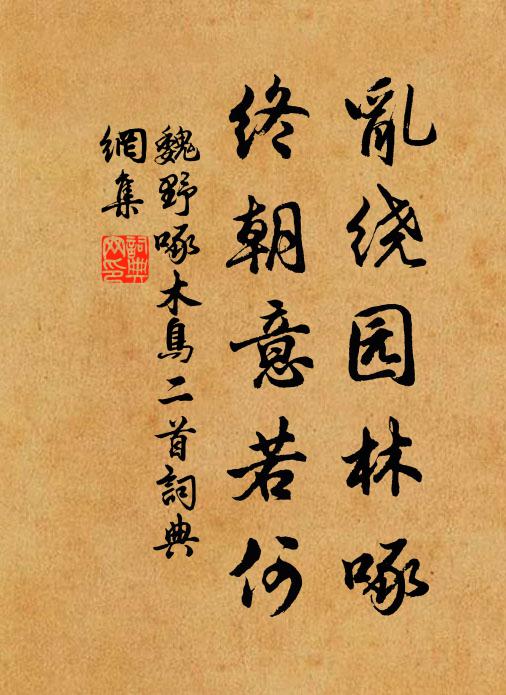 亂绕园林啄
终朝意若何
魏野啄木鳥二首詞典
網集
詞典
网印